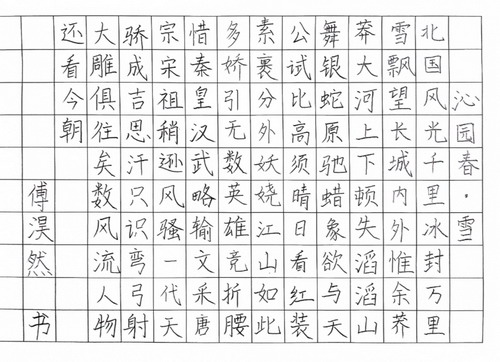 沁园春·雪
北国风光千里冰封万里
雪飘望长城内外惟余莽
莽大河上下顿失滔滔山
舞银蛇原驰蜡象欲与天
公试比高须晴日看红装
素裹分外妖娆江山如此
多娇引无数英雄竞折腰
惜秦皇汉武略输文采唐
宗宋祖稍逊风骚一代天
骄成吉思汗只识弯弓射
大雕俱往矣数风流人物
还看今朝
傅淏然 书